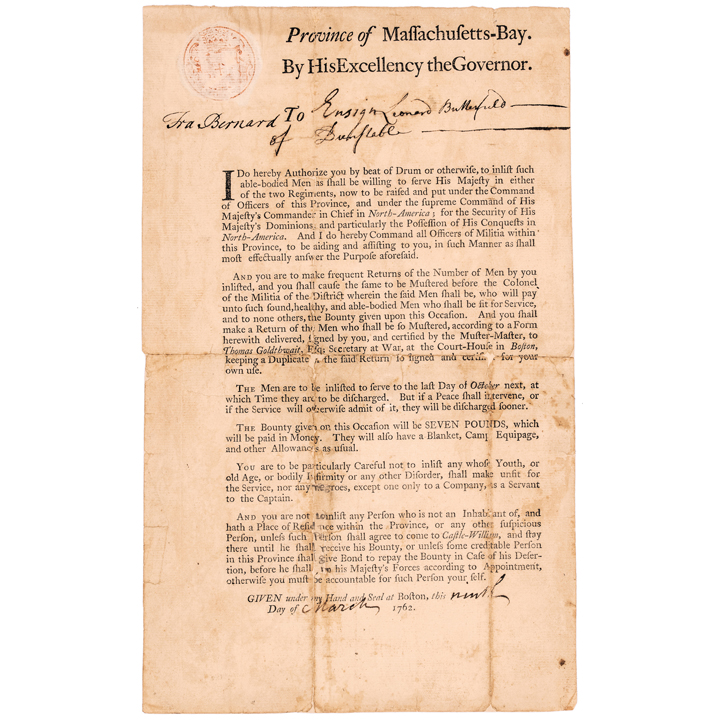 Province of Maſſachuſetts-Bay.
By His Excellency the Governor.
Fra Bernard To Enſign Leonard Butterfield
of Dunſtable
I Do hereby Authorize you by beat of Drum or otherwiſe, to inliſt ſuch
able-bodied Men as ſhall be willing to ſerve His Majeſty in either
of the two Regiments, now to be raiſed and put under the Command
of Officers of this Province, and under the ſupreme Command of His
Majeſty's Commander in Chief in North-America; for the Security of His
Majeſty's Dominions, and particularly the Poſſeſſion of His Conqueſts in
North-America. And I do hereby Command all Officers of Militia within
this Province, to be aiding and aſſiſting to you, in ſuch Manner as ſhall
moſt effectually anſwer the Purpoſe aforeſaid.
AND you are to make frequent Returns of the Number of Men by you
inliſted, and you ſhall cauſe the ſame to be Muſtered before the Colonel
of the Militia of the Diſtrict wherein the ſaid Men ſhall be, who will pay
unto ſuch ſound, healthy, and able-bodied Men who ſhall be fit for Service,
and to none others, the Bounty given upon this Occaſion. And you ſhall
make a Return of the Men who ſhall be ſo Muſtered, according to a Form
herewith delivered, ſigned by you, and certified by the Muſter-Maſter, to
Thomas Goldthwait, Eſq; Secretary at War, at the Court-House in Boſton,
keeping a Duplicate the ſaid Return ſo ſigned and for your
own uſe.
THE Men are to be inliſted to ſerve to the laſt Day of October next, at
which Time they are to be diſcharged. But if a Peace ſhall intervene, or
if the Service will otherwiſe admit of it, they will be diſcharged ſooner.
THE Bounty given on this Occaſion will be SEVEN POUNDS, which
will be paid in Money. They will alſo have a Blanket, Camp Equipage,
and other Allowances as uſual.
YOU are to be particularly Careful not to inliſt any whoſe Youth, or
old Age, or bodily Infirmity or any other Diſorder, ſhall make unfit for
the Service, nor any Negroes, except one only to a Company, as a Servant
to the Captain.
AND you are not to inliſt any Perſon who is not an Inhabitant of, and
hath a Place of Reſidence within the Province, or any other ſuſpicious
Perſon, unleſs ſuch Perſon ſhall agree to come to Caſtle-William, and ſtay
there until he ſhall receive his Bounty, or unleſs ſome creditable Perſon
in this Province ſhall give Bond to repay the Bounty in Caſe of his Deſer-
tion, before he ſhall his Majeſty's Forces according to Appointment,
otherwiſe you muſt be accountable for ſuch Perſon your ſelf.
GIVEN under my Hand and Seal at Boſton, this ninth
Day of March 1762.